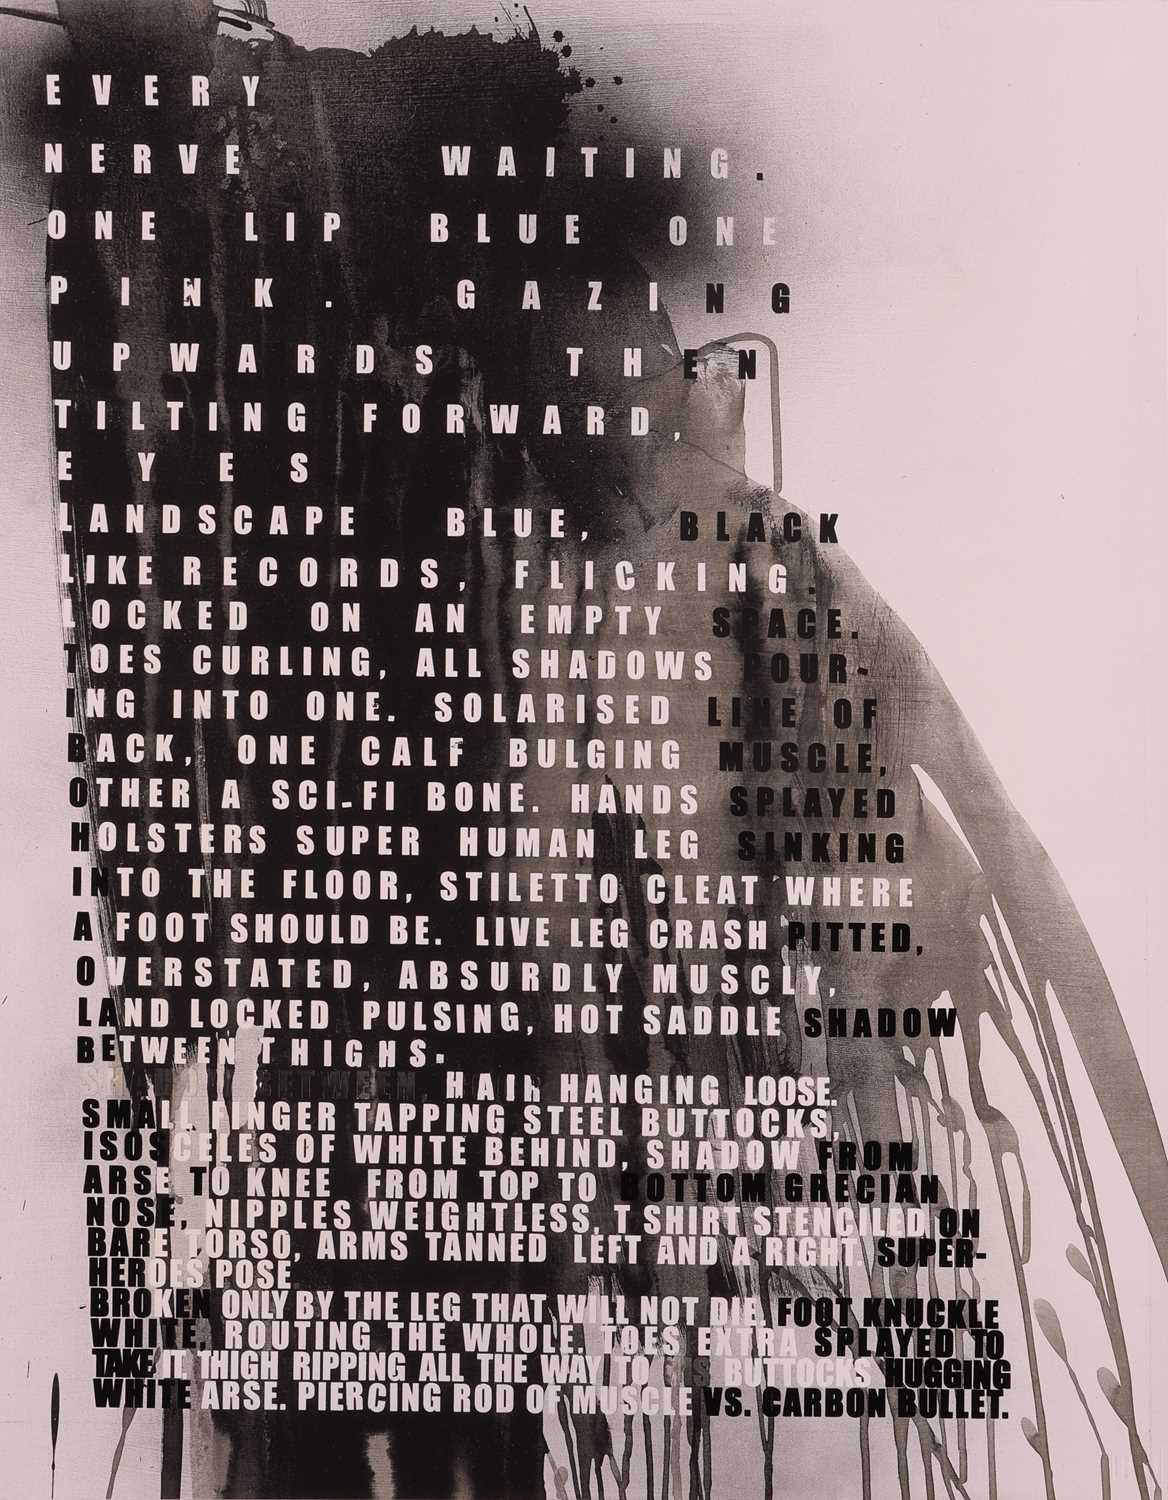 EVERY
NERVE WAITING.
ONE LIP BLUE ONE
PINK. GAZING
UPWARDS THEN
TILTING FORWARD,
EYES
LANDSCAPE BLUE, BLACK
LIKE RECORDS, FLICKING.
LOCKED ON AN EMPTY SPACE.
TOES CURLING, ALL SHADOWS POUR-
ING INTO ONE. SOLARISED LINE OF
BACK, ONE CALF BULGING MUSCLE,
OTHER A SCI-FI BONE. HANDS SPLAYED
HOLSTERS SUPER HUMAN LEG SINKING
INTO THE FLOOR, STILETTO CLEAT WHERE
A FOOT SHOULD BE. LIVE LEG CRASH PITTED,
OVERSTATED, ABSURDLY MUSCLY,
LAND LOCKED PULSING, HOT SADDLE SHADOW
BETWEEN THIGHS.
BETWEEN, HAIR HANGING LOOSE.
SMALL FINGER TAPPING STEEL BUTTOCKS,
ISOSCELES OF WHITE BEHIND, SHADOW FROM
ARSE TO KNEE FROM TOP TO BOTTOM GRECIAN
NOSE, NIPPLES WEIGHTLESS, T SHIRT STENCILED ON
BARE TORSO, ARMS TANNED LEFT AND A RIGHT. SUPER-
HEROES POSE
BROKEN ONLY BY THE LEG THAT WILL NOT DIE. FOOT KNUCKLE
WHITE, ROUTING THE WHOLE. TOES EXTRA SPLAYED TO
TAKE IT. THIGH RIPPING ALL THE WAY TO BUTTOCKS HUGGING
WHITE ARSE. PIERCING ROD OF MUSCLE VS. CARBON BULLET.